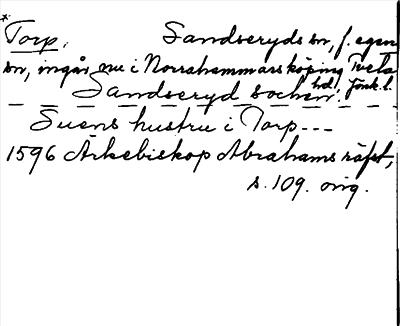 * Torp. Sandseryds sn, f. egen
sn, ingår nu i Norrahammars köping Tveta
hd, Jönk. l.
Sandseryd sochen
Suens hustru i Torp---
1596 Ärkebiskop Abrahams räfst,
s. 109. orig.